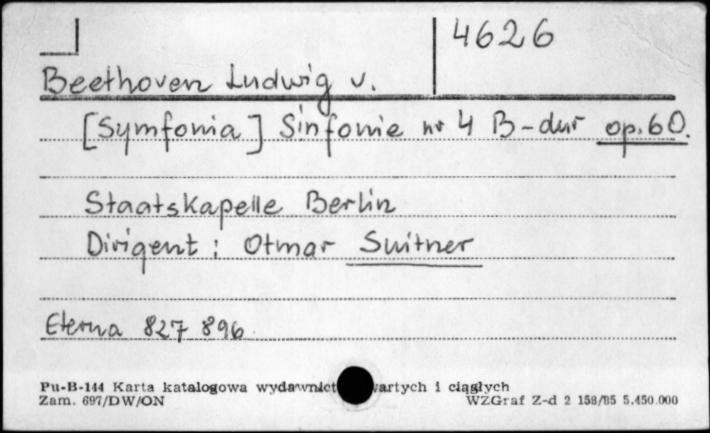 4626
Beethoven Ludwig v.
[Symfonia] Sinfonie nr 4 B-dur op. 60.
Staatskapelle Berlin
Dirigent: Otmar Suitner
Eterna 827 896
Pu-B-144 Karta katalogowa wydawnict wartych i ciągłych
Zam. 697/DW/ON WZGraf Z-d 2 158/85 5.450.000